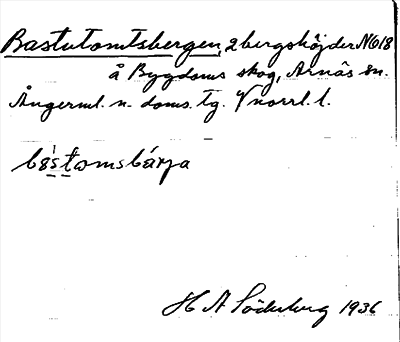 Bastutomtsbergen, 2 bergshöjder N618
å Bygdoms skog, Arnäs sn.
Ångerml. n. doms. tg. Ynorrl. l.
båstomsbárja
H A Söderberg 1936